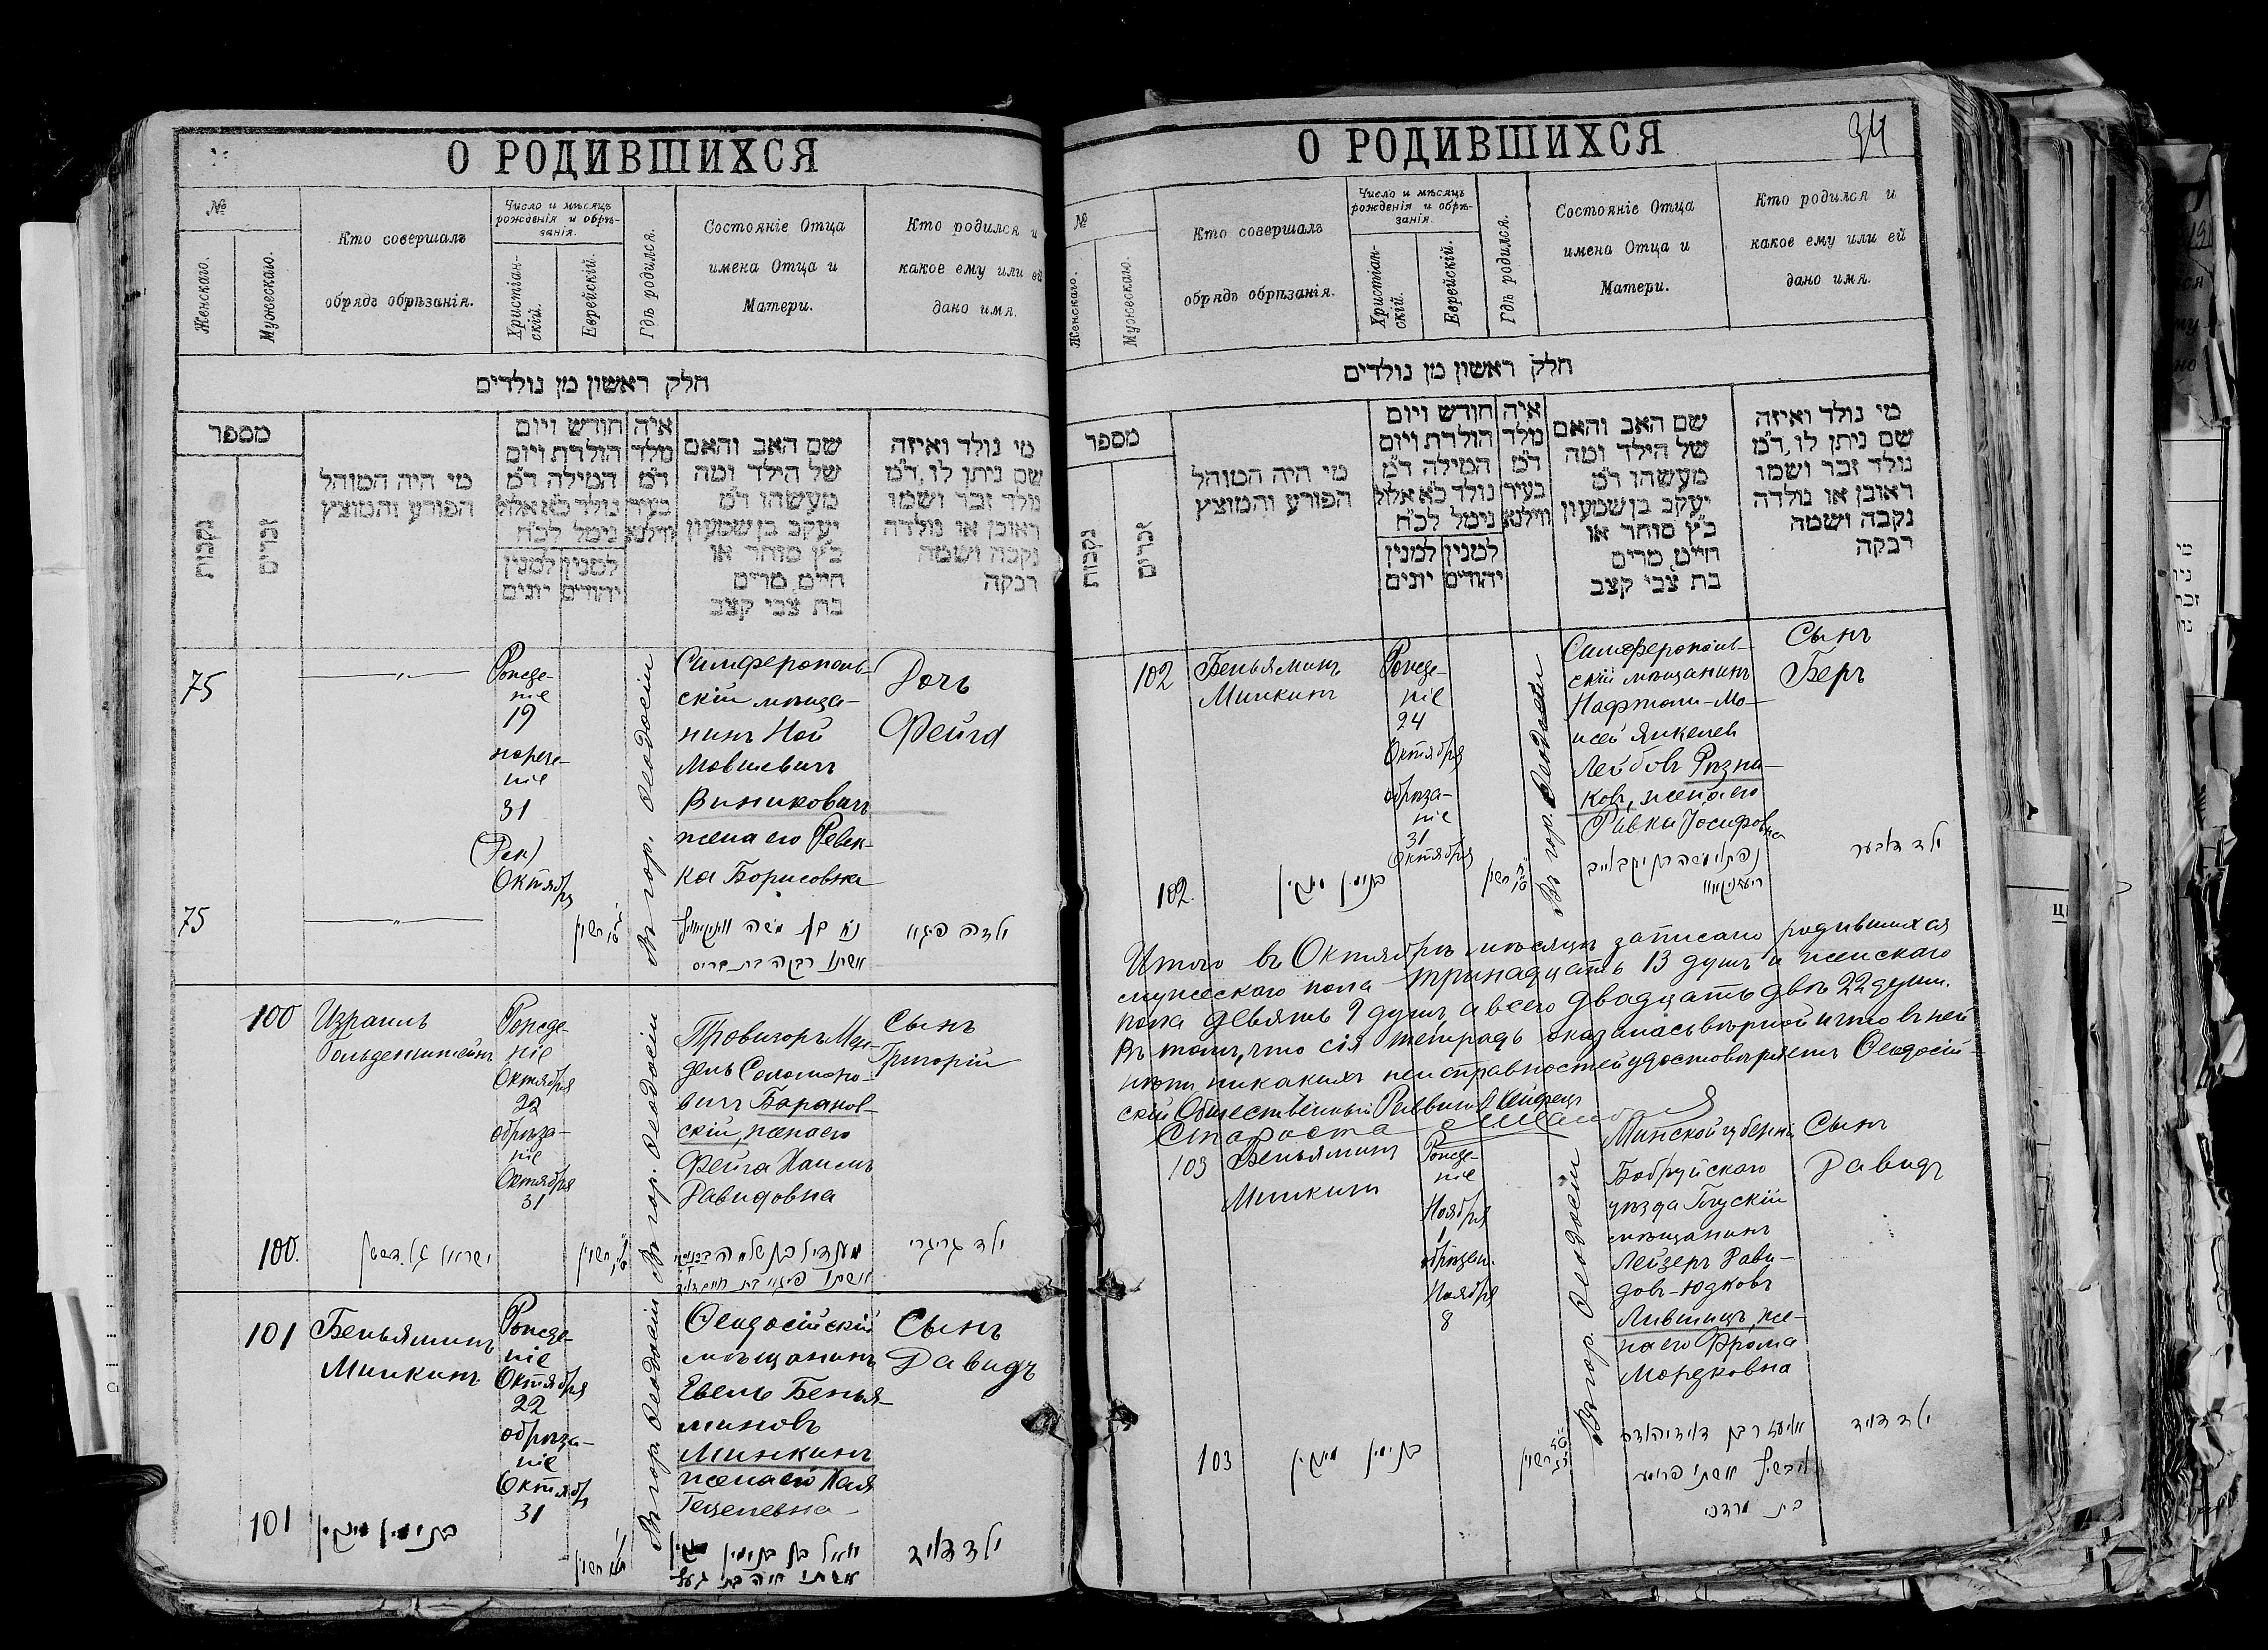 О РОДИВШИХСЯ
№
Женскаго.
Мужескаго.
Кто совершалъ
обрядъ обрѣзанія.
Число и мѣсяцъ
рожденія и обрѣ-
занія.
Христіан-
скій.
Еврейскій.
Гдѣ родился.
Состояніе Отца
имена Отца и
Матери.
Кто родился и
какое ему или ей
дано имя.
חלק ראשון מן נולדים
מספר
נקבות
זכרים
מי היה המוהל
הפורע והמוצץ
חודש ויום
הולדת ויום
המילה ד״מ
נולד כ״א אלול
נימל לכ״ח
למנין למנין
יהודים יונים
איה
מלד
ד״מ
בעיר
ווילנא
שם האב והאם
של הילד ומה
מעשהו ד״מ
יעקב בן שמעון
כ״ץ סוחר או
חיים מרים
בת צבי קצב
מי נולד ואיזה
שם ניתן לו, ד״מ
נולד זכר ושמו
ראובן או נולדה
נקבה ושמה
רבקה
75
Рожде-
ніе
19
нарече-
ніе
31
Октябр
Въ гор. Ѳеодосіи
Симферополь-
скій мѣща-
нинъ Ной
Мовшевичъ
Виникович
жена его Ревек-
ка Борисовна
Дочь
Фейга
75
נח בן משה
אשתו רבקה בת
ילדה פיגא
100
Израиль
Гольденштейнъ
Рожде-
ніе
Октября
22
обрѣза-
ніе
Октября
31
Въ гор. Ѳеодосіи
Провизоръ Мен-
дель Соломоно-
вичъ Баранов-
скій, жена его
Фейга
Давидовна
Сынъ
Григорій
100.
ישראל
ילד גריגרי
101
Беньяминъ
Минкинъ
Рожде-
ніе
Октября
22
обрѣза-
ніе
Октябр
31
Въ гор. Ѳеодосіи
Ѳеодосійскій
мѣщанинъ
Евель Бенья-
миновъ
Минкинъ
жена его Хая
Гецелевна
Сынъ
Давидъ
101
בנימין מינקין
אשתו חיה בת
ילד דוד
О РОДИВШИХСЯ
34
№
Женскаго.
Мужескаго.
Кто совершалъ
обрядъ обрѣзанія.
Число и мѣсяцъ
рожденія и обрѣ-
занія.
Христіан-
скій.
Еврейскій.
Гдѣ родился.
Состояніе Отца
имена Отца и
Матери.
Кто родился и
какое ему или ей
дано имя.
חלק ראשון מן נולדים
מספר
נקבות
זכרים
מי היה המוהל
הפורע והמוצץ
חודש ויום
הולדת ויום
המילה ד״מ
נולד כ״א אלול
נימל לכ״ח
למנין למנין
יהודים יונים
איה
מלד
ד״מ
בעיר
ווילנא
שם האב והאם
של הילד ומה
מעשהו ד״מ
יעקב בן שמעון
כ״ץ סוחר או
חיים מרים
בת צבי קצב
מי נולד ואיזה
שם ניתן לו, ד״מ
נולד זכר ושמו
ראובן או נולדה
נקבה ושמה
רבקה
102
Беньяминъ
Минкинъ
Рожде-
ніе
24
Октября
обрѣза-
ніе
31
Октября
Въ гор. Ѳеодосіи
Симферополь-
скій мѣщанинъ
Нафтоли-Мо-
исей Янкелев
Лейбовъ Рѣзни-
ковъ, жена его
Ривка Іосифовна
Сынъ
Беръ
102.
בנימין מינקין
ילד
Итого въ Октябрѣ мѣсяцѣ записано родившихся
мужескаго пола тринадцать 13 душъ и женскаго
пола девять 9 душъ а всего двадцать двѣ 22 души.
Въ томъ, что сія тетрадь оказалась вѣрной и что въ ней
нѣтъ никакихъ неисправностей удостовѣряетъ Ѳеодосій-
скій Общественный Раввинъ
Староста
103
Беньяминъ
Минкинъ
Рожде-
ніе
Ноября
1
обрѣзан.
Ноября
8
Въ гор. Ѳеодосіи
Минской губерніи
Бобруйскаго
уѣзда Глускій
мѣщанинъ
Лейзеръ Дави-
довъ-Юдковъ
Лившицъ, же-
на его Фрома
Мордковна
Сынъ
Давидъ
103
בנימין מינקין
אשתו פרומע
בת מרדכי
ילד דוד